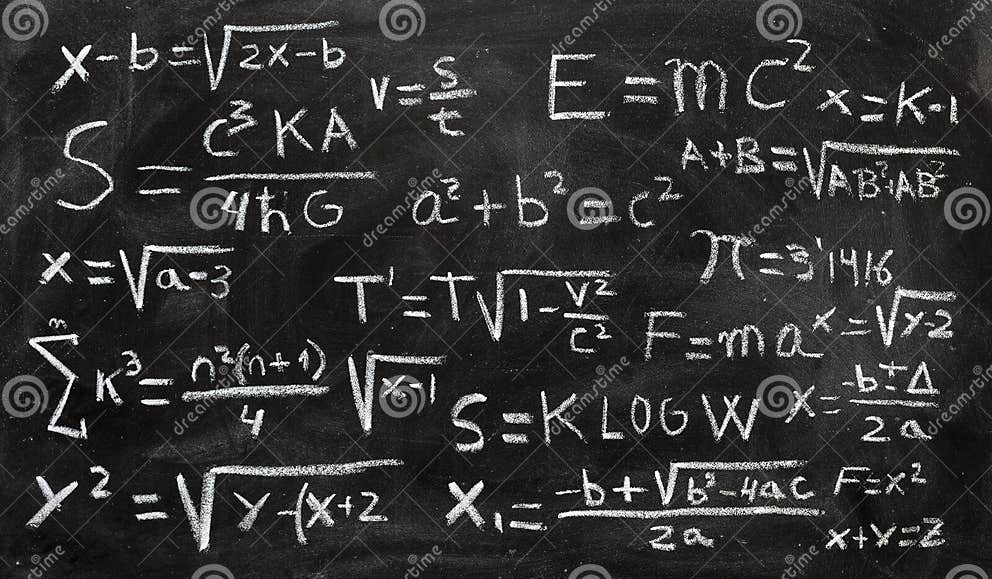 x-b=√2x-b
v=s/t
E=mc²
x=K-1
S=c³KA/4ħG
a²+b²=c²
A+B=√AB²+AB²
x=√a-3
T'=T√1-v²/c²
π=3'1416
F=ma
x=√y-2
∑K³=n²(n+1)/4
√x-1
S=KLOGW
x=-b±Δ/2a
y²=√y-(x+2
x₁=-b+√b²-4ac/2a
F=x²
x+y=z
dreamstime